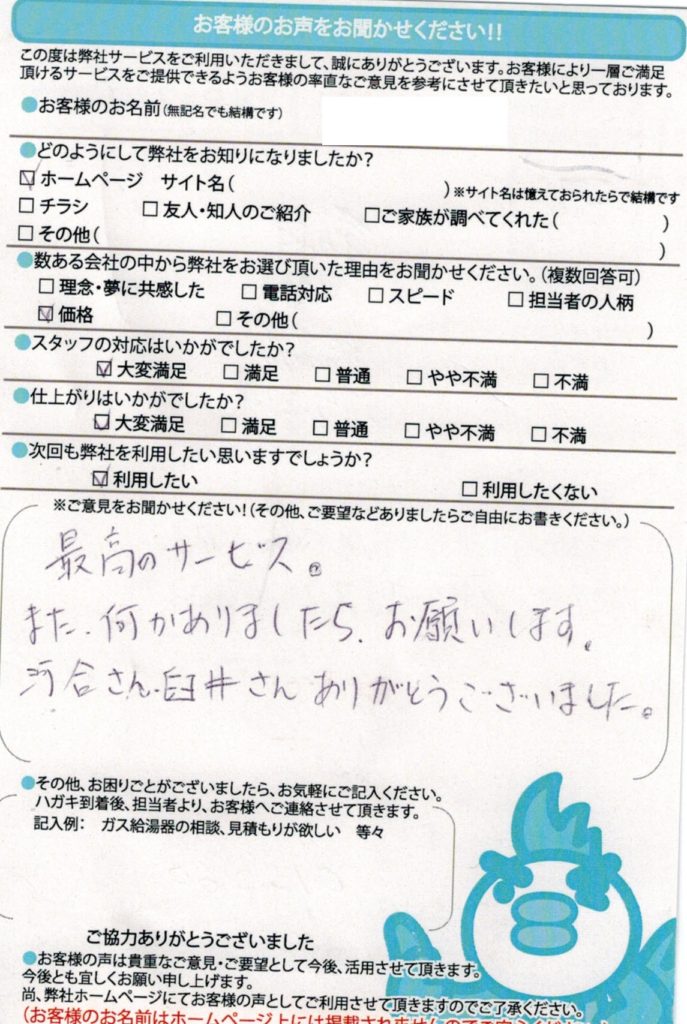 お客様のお声をお聞かせください!!
この度は弊社サービスをご利用いただきまして、誠にありがとうございます。お客様により一層ご満足
頂けるサービスをご提供できるようお客様の率直なご意見を参考にさせて頂きたいと思っております。
●お客様のお名前(無記名でも結構です)
●どのようにして弊社をお知りになりましたか?
☑ホームページ サイト名( )※サイト名は憶えておられたらで結構です
□チラシ □友人・知人のご紹介 □ご家族が調べてくれた( )
□その他( )
●数ある会社の中から弊社をお選び頂いた理由をお聞かせください。(複数回答可)
□理念・夢に共感した □電話対応 □スピード □担当者の人柄
☑価格 □その他( )
●スタッフの対応はいかがでしたか?
☑大変満足 □満足 □普通 □やや不満 □不満
●仕上がりはいかがでしたか?
☑大変満足 □満足 □普通 □やや不満 □不満
●次回も弊社を利用したい思いますでしょうか?
☑利用したい □利用したくない
※ご意見をお聞かせください!(その他、ご要望などありましたらご自由にお書きください。)
最高のサービス。
また、何かありましたら、お願いします。
河合さん、臼井さんありがとうございました。
●その他、お困りごとがございましたら、お気軽にご記入ください。
ハガキ到着後、担当者より、お客様へご連絡させて頂きます。
記入例: ガス給湯器の相談、見積もりが欲しい 等々
ご協力ありがとうございました
●お客様の声は貴重なご意見・ご要望として今後、活用させて頂きます。
今後とも宜しくお願い申し上げます。
尚、弊社ホームページにてお客様の声としてご利用させて頂きますのでご了承ください。
(お客様のお名前はホームページ上には掲載されませんのでご安心ください